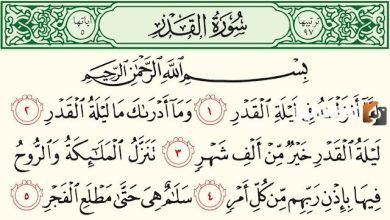 ترتيبها ٩٧ سُورَةُ الْقَدْرِ آياتها ٥
بِسْمِ اللَّهِ الرَّحْمَٰنِ الرَّحِيمِ
فِي لَيْلَةِ الْقَدْرِ ١ وَمَا أَدْرَاكَ مَا لَيْلَةُ الْقَدْرِ ٢
لَيْلَةُ الْقَدْرِ خَيْرٌ مِّنْ أَلْفِ شَهْرٍ ٣ تَنَزَّلُ الْمَلَٰئِكَةُ وَالرُّوحُ
فِيهَا بِإِذْنِ رَبِّهِم مِّن كُلِّ أَمْرٍ ٤ سَلَٰمٌ هِيَ حَتَّىٰ مَطْلَعِ الْفَجْرِ ٥